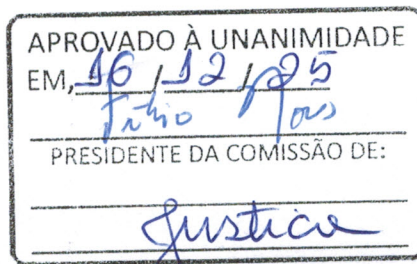 APROVADO À UNANIMIDADE
EM, 16 / 12 / 25
PRESIDENTE DA COMISSÃO DE:
Justica